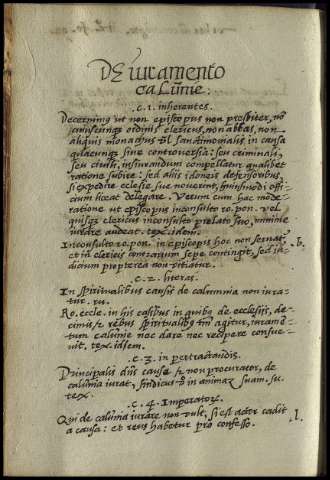 DE iuramento
calũnie.
.c. 1. inherentes.
Decernimꝰ ut non episcopus non presbiter, nõ
cuiuscunqꝫ ordinis clericus, non abbas, non
aliquis monachus vĺ sanctimonialis in causa
qualcunqꝫ sine controversia: seu criminali,
seu civili, iusiurandum compellatur qualibet
ratione subire: sed aliis idoneis defensoribus
si expedire eclesie sue noverint, huiusmodi offi-
cium liceat delegare. Verum cum hac mode-
ratione ut episcopus inconsulto ro. pon. vel
quisqꝫ clericus inconsulto prelato suo, minime
iurare audeat. tex. idem.
Inconsulto ro. pon. in episcopis hoc non servat
et in clericis contrarium sepe contingit, sed iu-
dicium propterea non vitiatur.
.b.
.c. 2. literas.
In spiritualibus causis de calumnia non iura-
tur. ru.
Ro. eccle. in his casibus in quibꝰ de ecclesiis, de-
cimis et rebus spiritualibꝰ agitur, iuramẽ-
tum calũnie nec dare nec recipere consue-
vit. tex. idem.
.c. 3. in pertractandis.
Principalis dñs cause et non procurator, de
calũnia iurat, sindicus vo in animas suam. su.
tex.
.c. 4. Imperatorꝫ.
Qui de calũnia iurare non vult, si est actor cadit
a causa: et reus habetur pro confesso.
.l.